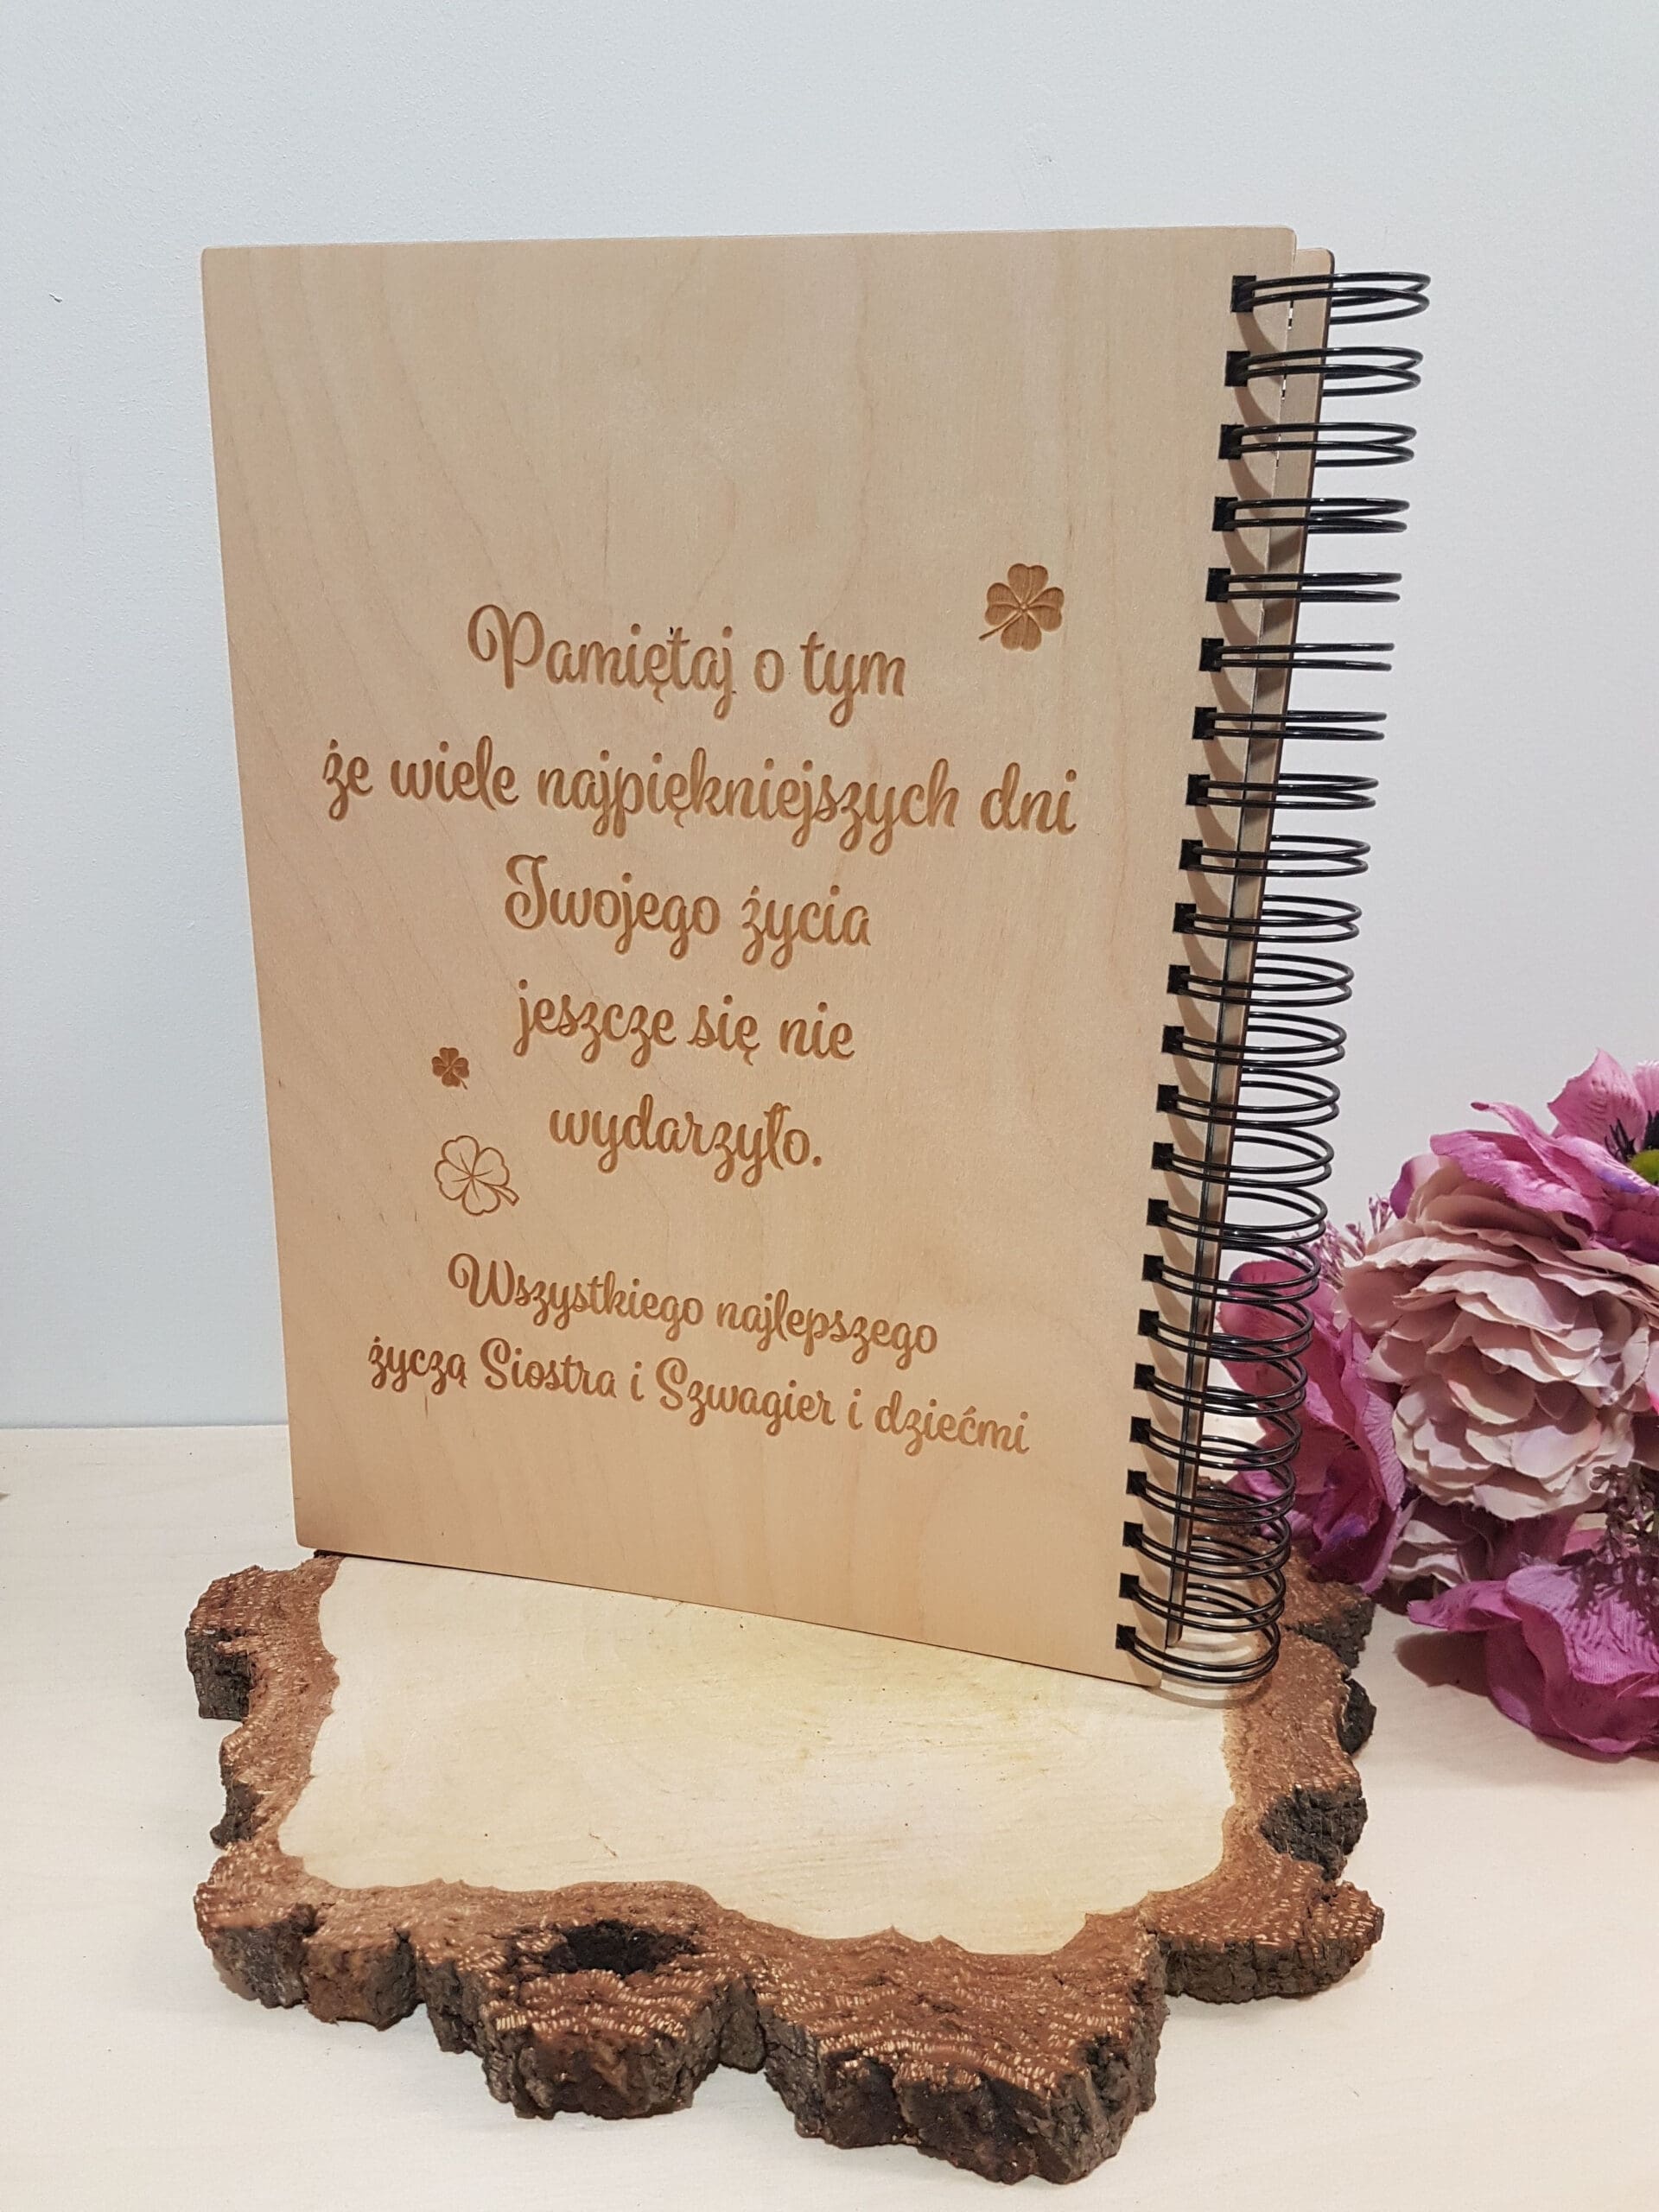 Pamiętaj o tym
że wiele najpiękniejszych dni
Twojego życia
jeszcze się nie
wydarzyło.
Wszystkiego najlepszego
życzą Siostra i Szwagier i dziećmi